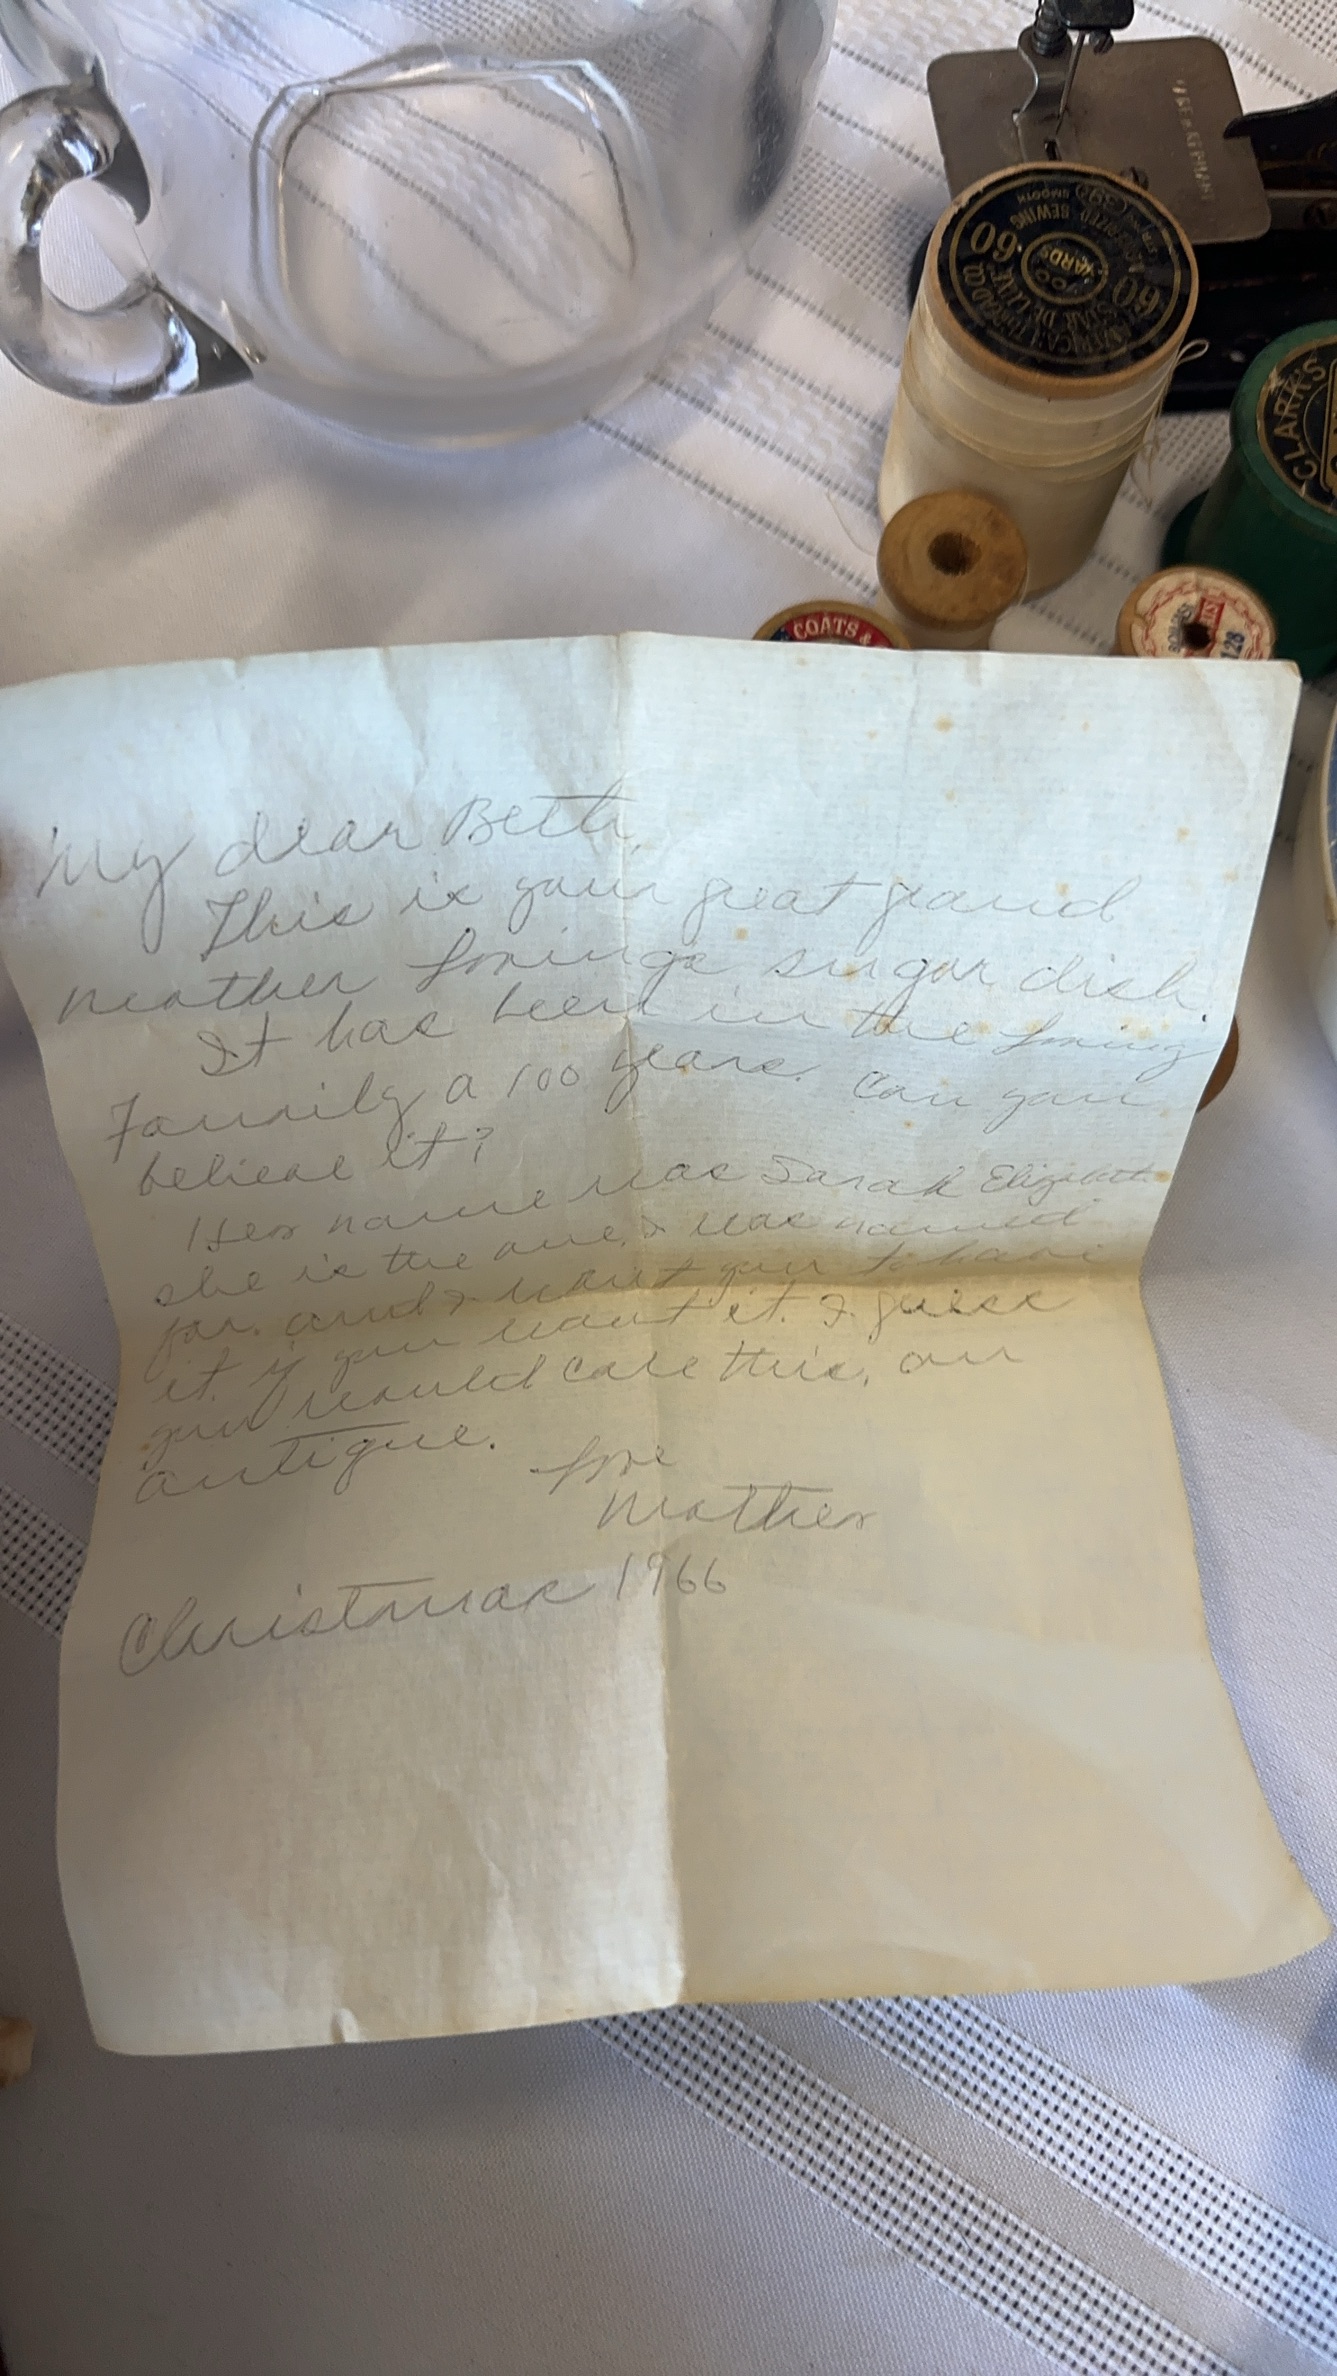 60
60
SEWING
SMOOTH
YARDS
STAR DE LUXE
AMERICAN THREAD CO
CLARK'S
COATS &
128
My dear Beth,
This is your great grand
mother Lorings sugar dish.
It has been in the Loring
Family a 100 years. Can you
believe it?
Her name was Sarah Elizabeth
she is the one I was named
for. and I want you to have
it if you want it. I guess
you would call this, an
antique.
Love
Mother
Christmas 1966